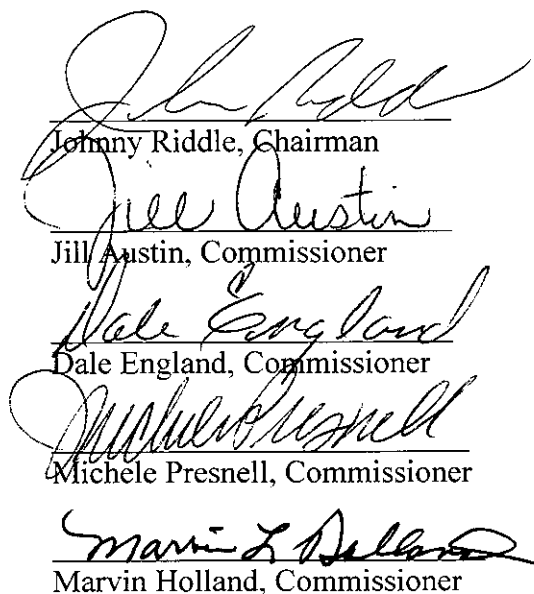 John Riddle
Johnny Riddle, Chairman
Jill Austin
Jill Austin, Commissioner
Dale England
Dale England, Commissioner
Michele Presnell
Michele Presnell, Commissioner
Marvin L Holland
Marvin Holland, Commissioner